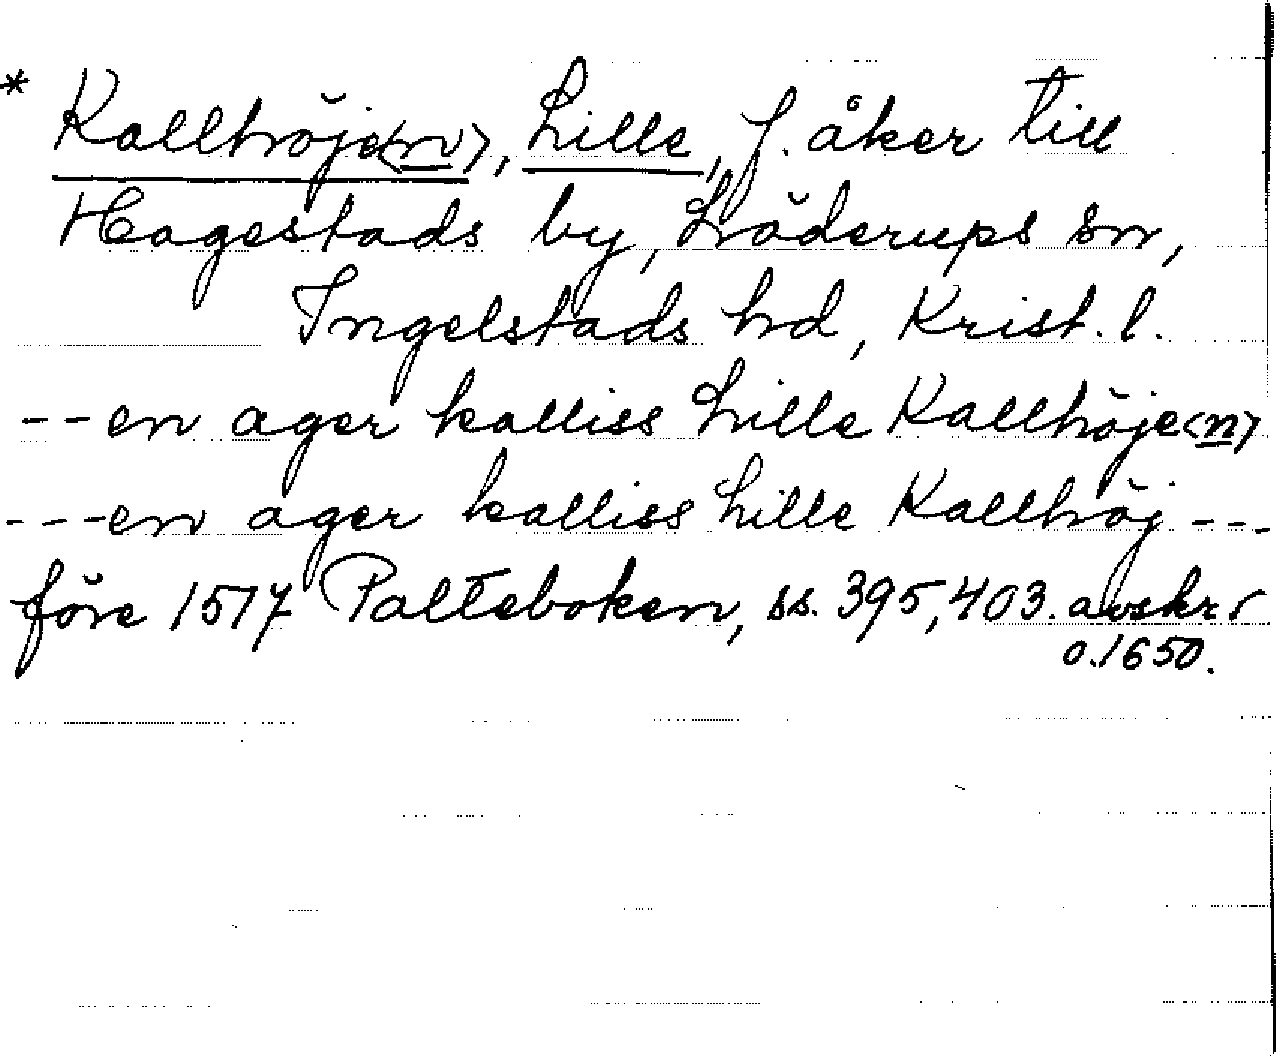 * Kallhöje(n), Lille, f. åker till
Hagestads by, Löderups sn,
Ingelstads hd, Krist. l.
--en ager kalliss Lille Kallhöje(n)
---en ager kalliss Lille Kallhöj---
före 1517 Palteboken, ss. 395, 403. avskr
o. 1650.